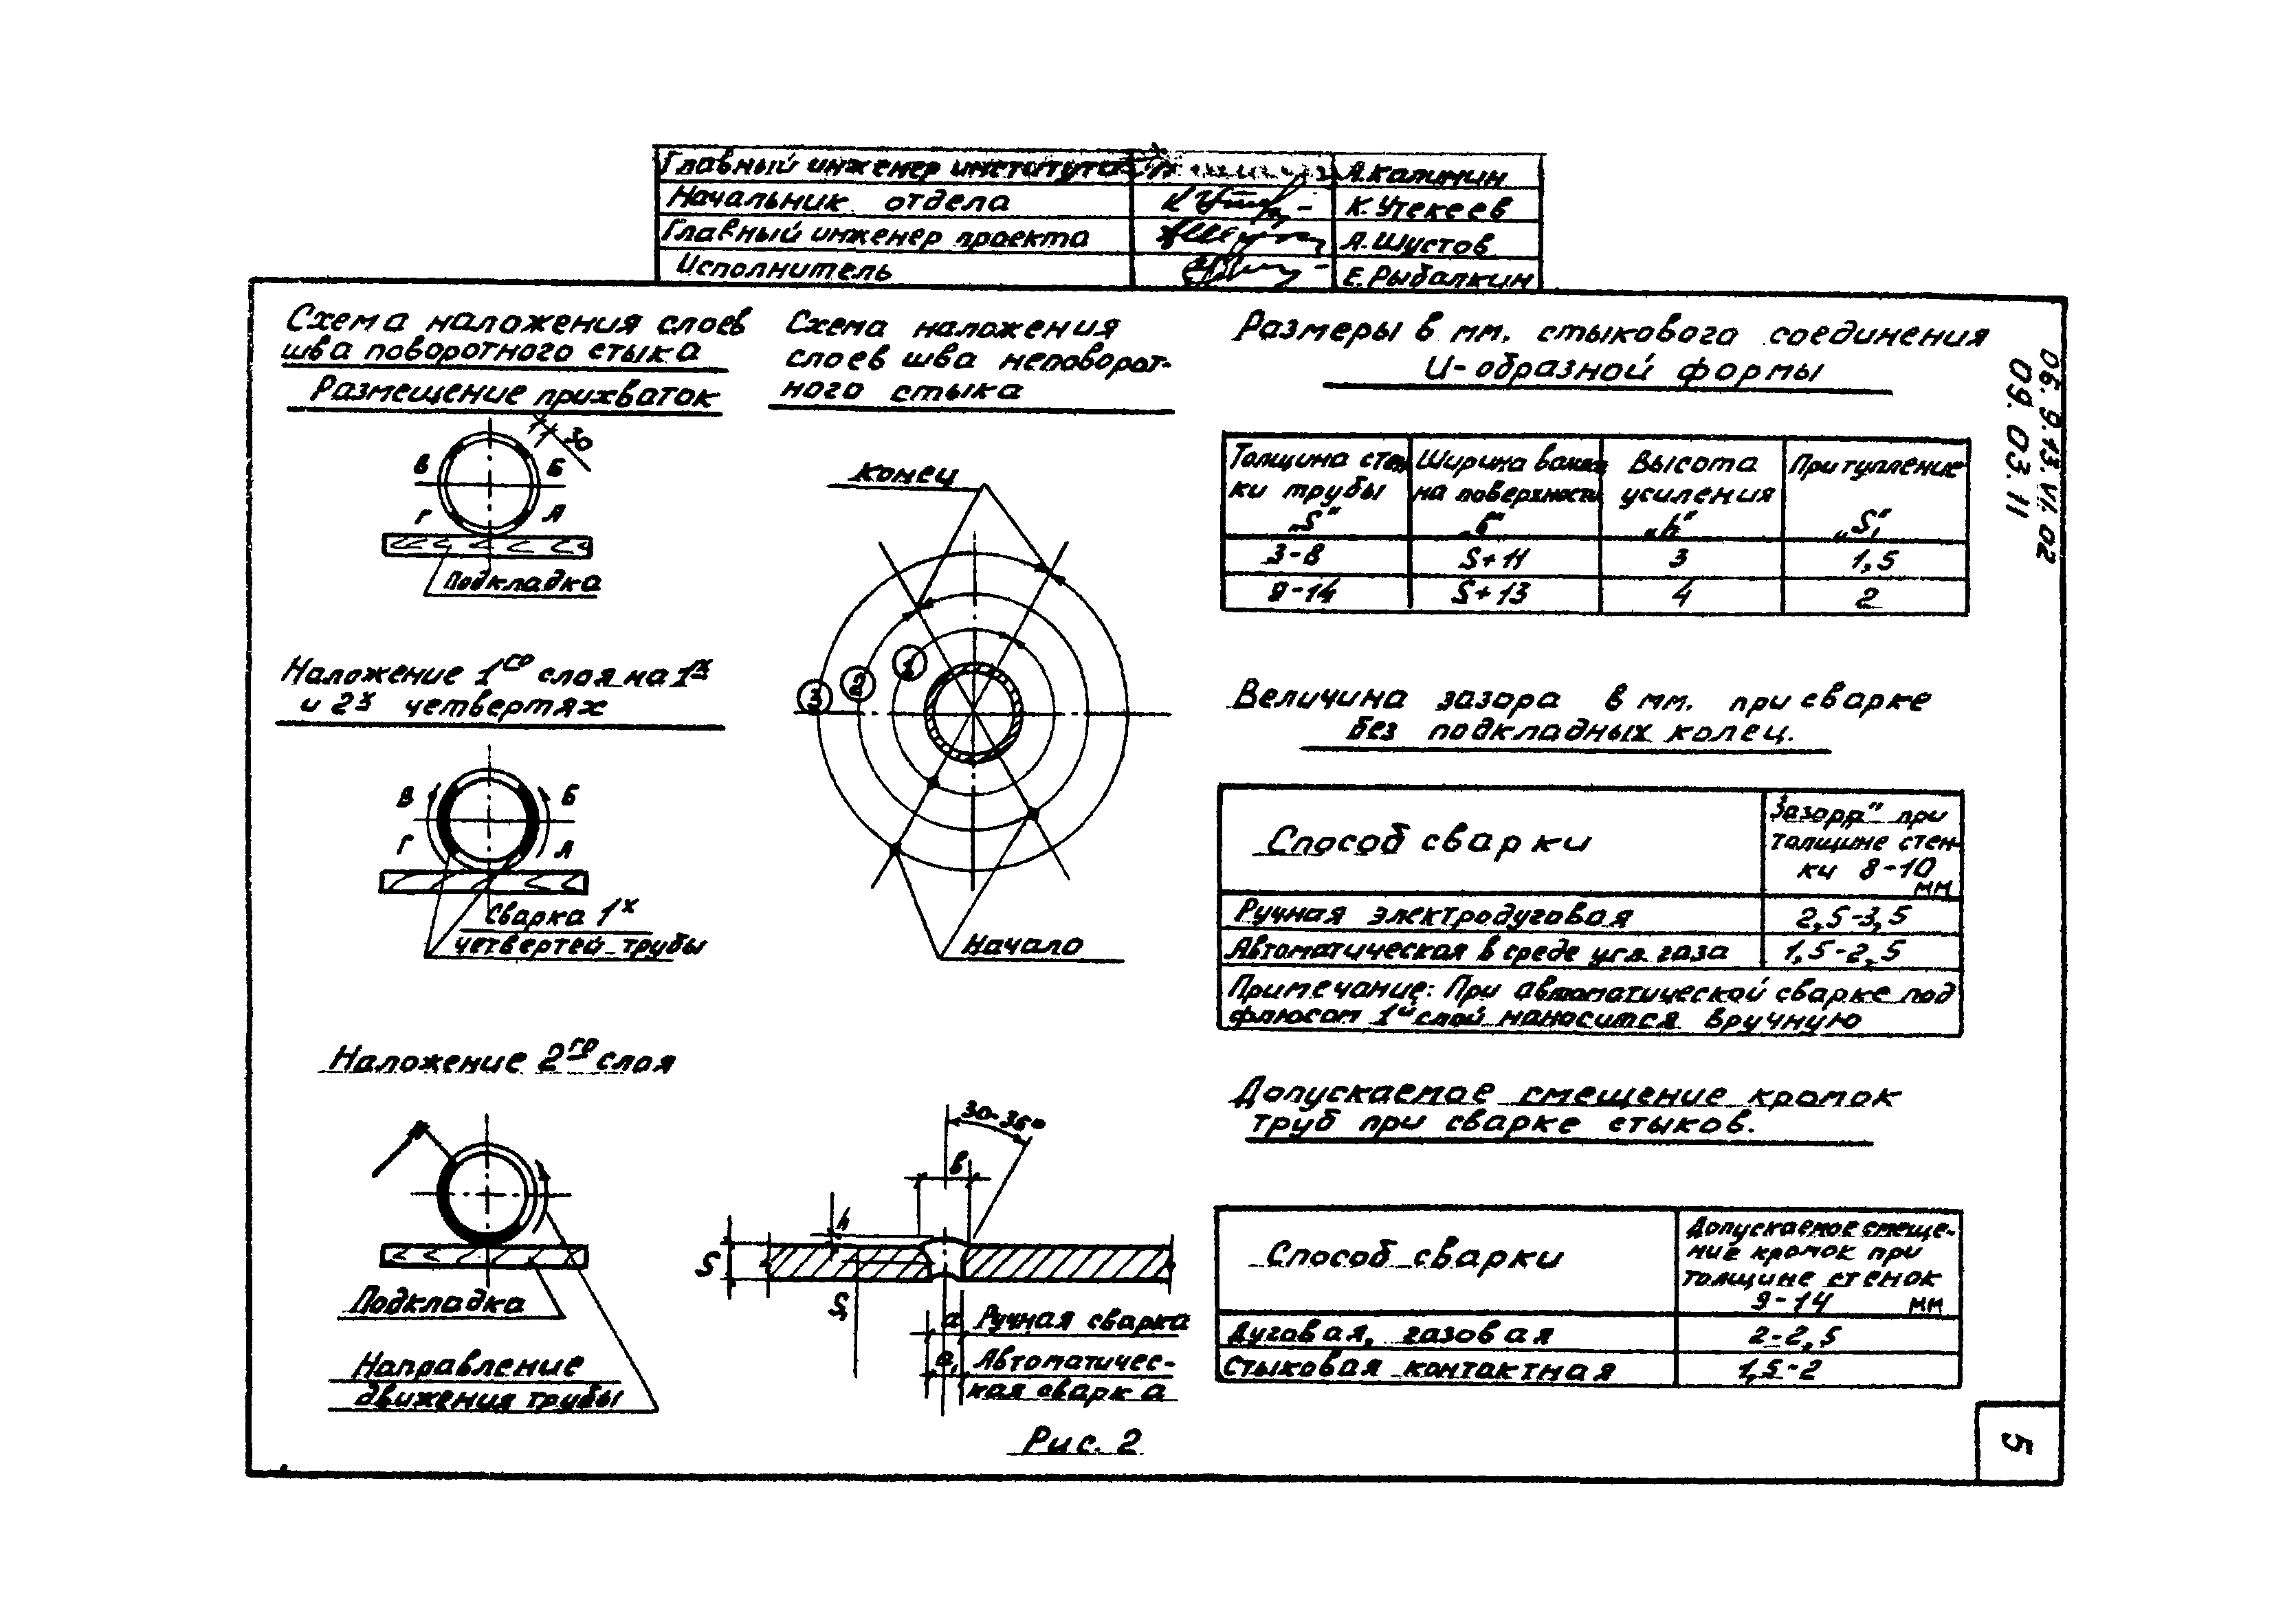 Главный инженер института А.Калинин
Начальник отдела К.Утекеев
Главный инженер проекта А.Шустов
Исполнитель Е.Рыбалкин
Схема наложения слоев
шва поворотного стыка
Размещение прихваток
30
В Б
Г А
Подкладка
Наложение 1го слоя на 1х
и 2х четвертях
В Б
Г А
Сварка 1х
четвертей трубы
Наложение 2го слоя
Подкладка
Направление
движения трубы
Схема наложения
слоев шва неповорот-
ного стыка
конец
1
2
3
Начало
30-35°
в
h
S
S1
а Ручная сварка
а1 Автоматичес-
кая сварка
Рис. 2
Размеры в мм. стыкового соединения
U-образной формы
Толщина стен Ширина ванны Высота Притупление
ки трубы на поверхности усиления
„S" „в" „h" „S1"
3-8 S+11 3 1,5
9-14 S+13 4 2
Величина зазора в мм. при сварке
без подкладных колец.
Способ сварки
при
толщине стен-
ки 8-10
мм
Ручная электродуговая 2,5-3,5
Автоматическая в среде угл. газа 1,5-2,5
Примечание: При автоматической сварке под
флюсом 1й слой наносится вручную
Допускаемое смещение кромок
труб при сварке стыков.
Способ сварки
Допускаемое смеще-
ние кромок при
толщине стенок
9-14 мм
Дуговая, газовая 2-2,5
Стыковая контактная 1,5-2
06.9.13.VI.02
09.03.11
5